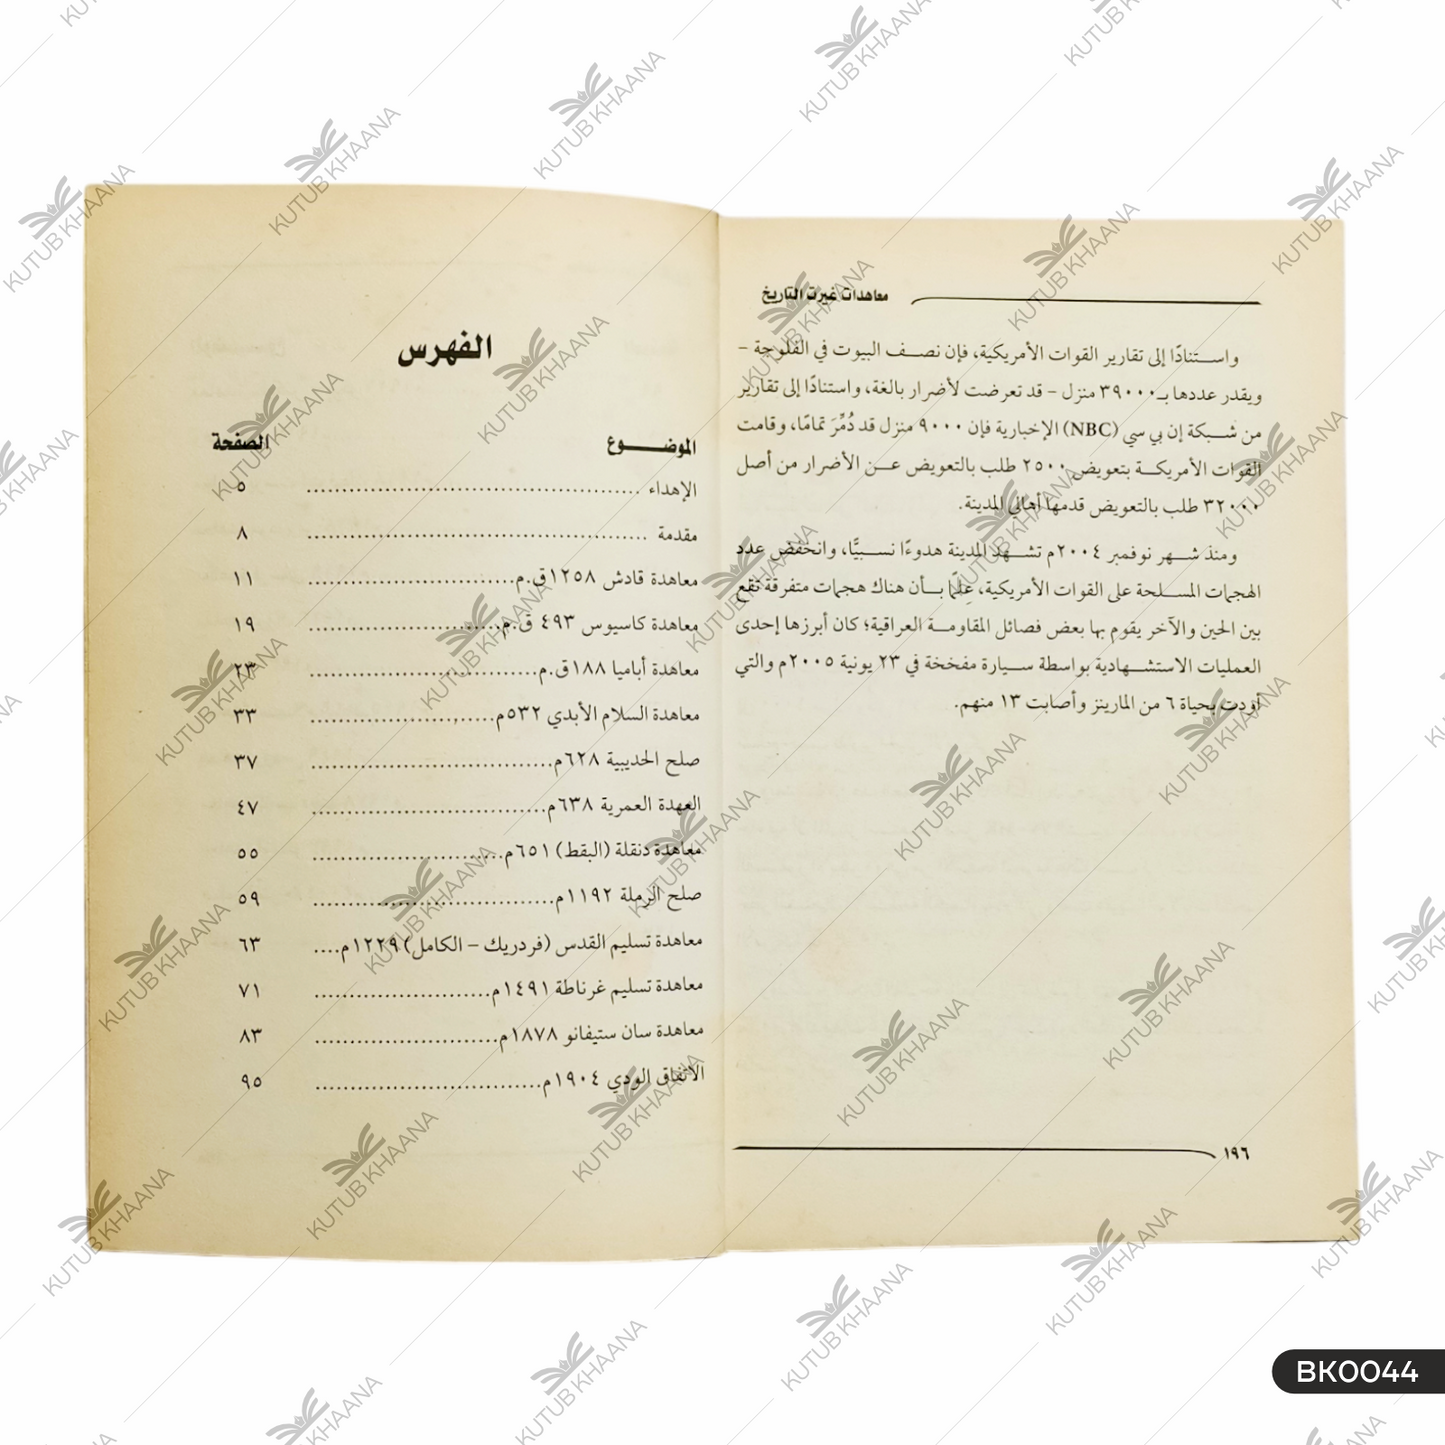 معاهدات غيرت التاريخ
واستنادًا إلى تقارير القوات الأمريكية، فإن نصف البيوت في الفلوجة –
ويقدر عددها بـ٣٩٠٠٠ منزل – قد تعرضت لأضرار بالغة، واستنادًا إلى تقارير
من شبكة إن بي سي (NBC) الإخبارية فإن ٩٠٠٠ منزل قد دُمِّرَ تمامًا، وقامت
القوات الأمريكية بتعويض ٢٥٠٠ طلب بالتعويض عن الأضرار من أصل
٣٢٠٠٠ طلب بالتعويض قدمها أهالي المدينة.
ومنذ شهر نوفمبر ٢٠٠٤م تشهد المدينة هدوءًا نسبيًّا، وانخفض عدد
الهجمات المسلحة على القوات الأمريكية، عِلمًا بأن هناك هجمات متفرقة تقع
بين الحين والآخر يقوم بها بعض فصائل المقاومة العراقية؛ كان أبرزها إحدى
العمليات الاستشهادية بواسطة سيارة مفخخة في ٢٣ يونية ٢٠٠٥م والتي
أودت بحياة ٦ من المارينز وأصابت ١٣ منهم.
١٩٦
الفهرس
الموضوع الصفحة
الإهداء ........................................ ٥
مقدمة ........................................ ٨
معاهدة قادش ١٢٥٨ق.م............................ ١١
معاهدة كاسيوس ٤٩٣ ق.م............................ ١٩
معاهدة أباميا ١٨٨ق.م............................ ٢٣
معاهدة السلام الأبدي ٥٣٢م............................ ٣٣
صلح الحديبية ٦٢٨م............................ ٣٧
العهدة العمرية ٦٣٨م............................ ٤٧
معاهدة دنقلة (البقط) ٦٥١م............................ ٥٥
صلح الرملة ١١٩٢م............................ ٥٩
معاهدة تسليم القدس (فردريك – الكامل) ١٢٢٩م.... ٦٣
معاهدة تسليم غرناطة ١٤٩١م........................ ٧١
معاهدة سان ستيفانو ١٨٧٨م........................ ٨٣
الاتفاق الودي ١٩٠٤م............................ ٩٥
KUTUB KHAANA
BK0044